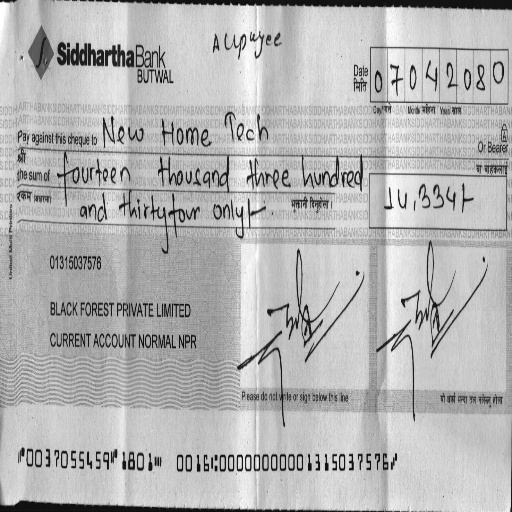 SiddharthaBank
BUTWAL
A/c payee
Date
मिति
07042080
Day/गते Month महिना Year साल
Pay against this cheque to New Home Tech
Or Bearer
श्री
या वाहकलाई
the sum of fourteen thousand three hundred
रकम (अक्षरमा)
and thirtyfour only/-
भुक्तानी दिनुहोस् ।
14,334/-
01315037576
BLACK FOREST PRIVATE LIMITED
CURRENT ACCOUNT NORMAL NPR
Please do not write or sign below this line
⑈0037055459⑈1801⑉ 0016⑆00000000001315037576⑈